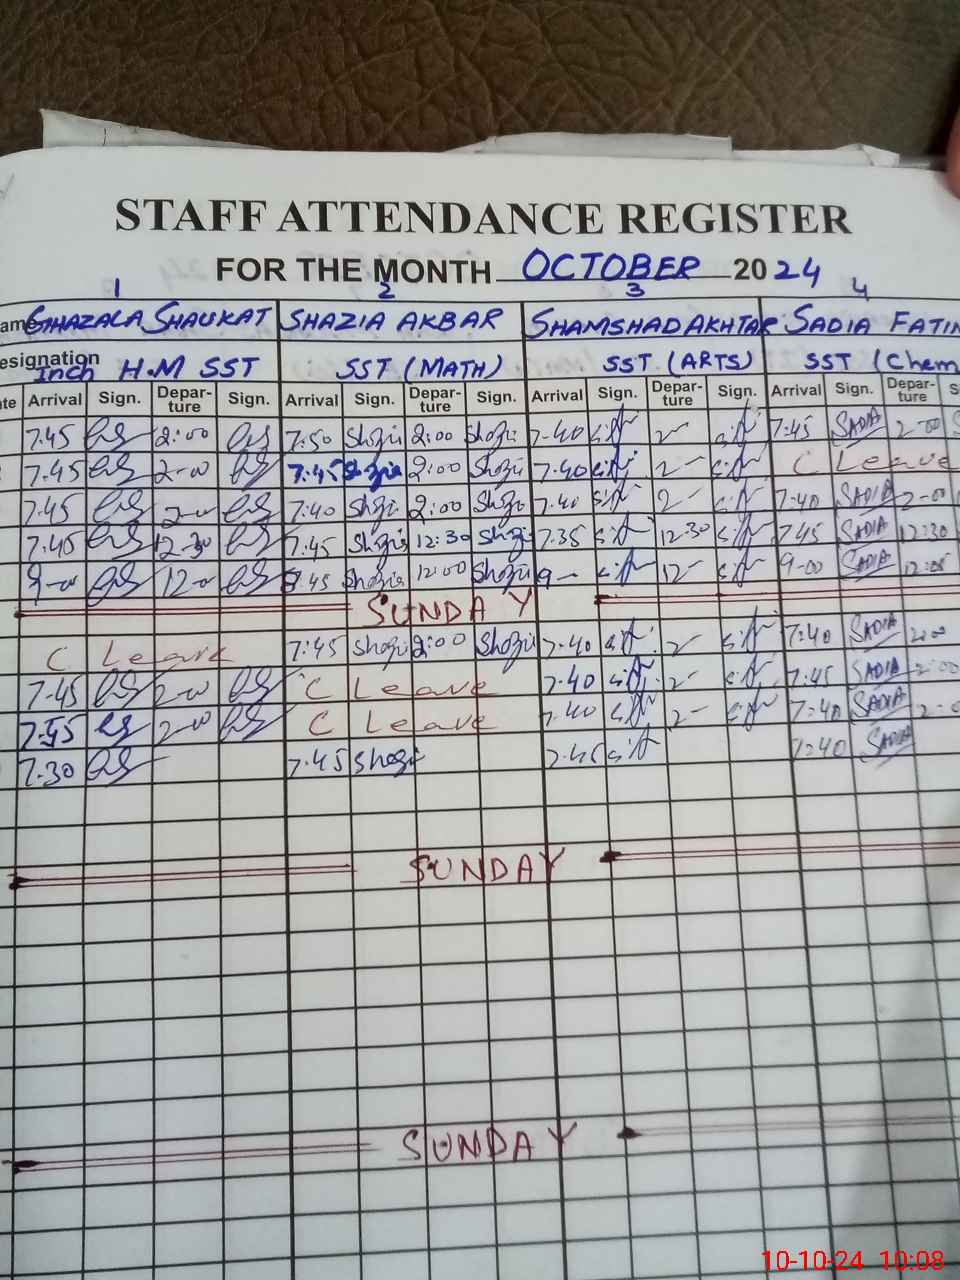 STAFF ATTENDANCE REGISTER
FOR THE MONTH OCTOBER 2024
1 2 3 4
GHAZALA SHAUKAT SHAZIA AKBAR SHAMSHAD AKHTAR SADIA FATIM
esignation Inch H.M SST SST (MATH) SST (ARTS) SST (Chem
Arrival Sign. Depar-ture Sign. Arrival Sign. Depar-ture Sign. Arrival Sign. Depar-ture Sign. Arrival Sign. Depar-ture
7.45 2:00 7:50 Shazia 2:00 Shazia 7-40 2- 7:45 SADIA 2-00
7.45 2-00 7:45 Shazia 2:00 Shazia 7.40 2- C Leave
7.45 2-00 7:40 Shazia 2:00 Shazia 7.40 2- 7:40 SADIA 2-00
7.45 12.30 7.45 Shazia 12:30 Shazia 7.35 12.30 7.45 SADIA 12:30
9-00 12-0 8.45 Shazia 12:00 Shazia 9- 12- 9-00 SADIA 12:05
SUNDAY
C Leave 7:45 Shazia 2:00 Shazia 7.40 2- 7:40 SADIA 2:00
7.45 2-00 C Leave 7.40 2- 7:45 SADIA 2:00
2-00 C Leave 7.40 2- 7:40 SADIA
7.30 7.45 Shazia 7.45 7:40 SADIA
SUNDAY
SUNDAY
10-10-24 10:08